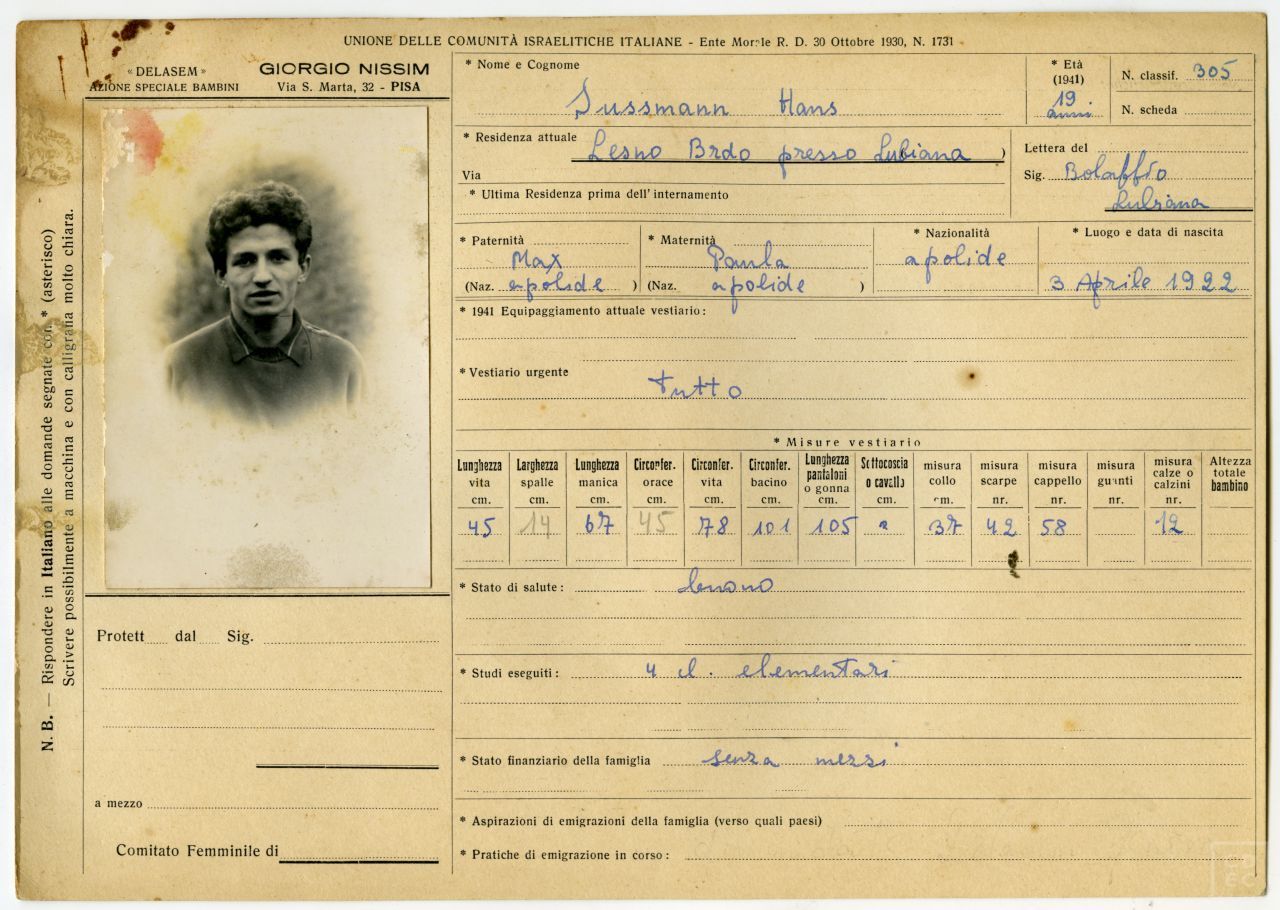 UNIONE DELLE COMUNITÀ ISRAELITICHE ITALIANE - Ente Morale R. D. 30 Ottobre 1930, N. 1731
« DELASEM »
AZIONE SPECIALE BAMBINI
GIORGIO NISSIM
Via S. Marta, 32 - PISA
N. B. — Rispondere in Italiano alle domande segnate con * (asterisco)
Scrivere possibilmente a macchina e con calligrafia molto chiara.
* Nome e Cognome
Sussmann Hans
* Età
(1941)
19
anni
N. classif. 305
N. scheda
* Residenza attuale Lesno Brdo presso Lubiana )
Via
* Ultima Residenza prima dell'internamento
Lettera del
Sig. Bolaffio
Lubiana
* Paternità
Max
(Naz. apolide )
* Maternità
Paula
(Naz. apolide )
* Nazionalità
apolide
* Luogo e data di nascita
3 Aprile 1922
* 1941 Equipaggiamento attuale vestiario:
* Vestiario urgente
Tutto
* Misure vestiario
Lunghezza vita cm. 45
Larghezza spalle cm. 14
Lunghezza manica cm. 67
Circonfer. orace cm. 45
Circonfer. vita cm. 78
Circonfer. bacino cm. 101
Lunghezza pantaloni o gonna cm. 105
Sottocoscia o cavallo cm.
misura collo cm. 37
misura scarpe nr. 42
misura cappello nr. 58
misura guanti nr.
misura calze o calzini nr. 12
Altezza totale bambino
* Stato di salute: buono
* Studi eseguiti: 4 cl. elementari
* Stato finanziario della famiglia senza mezzi
* Aspirazioni di emigrazioni della famiglia (verso quali paesi)
* Pratiche di emigrazione in corso:
Protett dal Sig.
a mezzo
Comitato Femminile di
CDEC